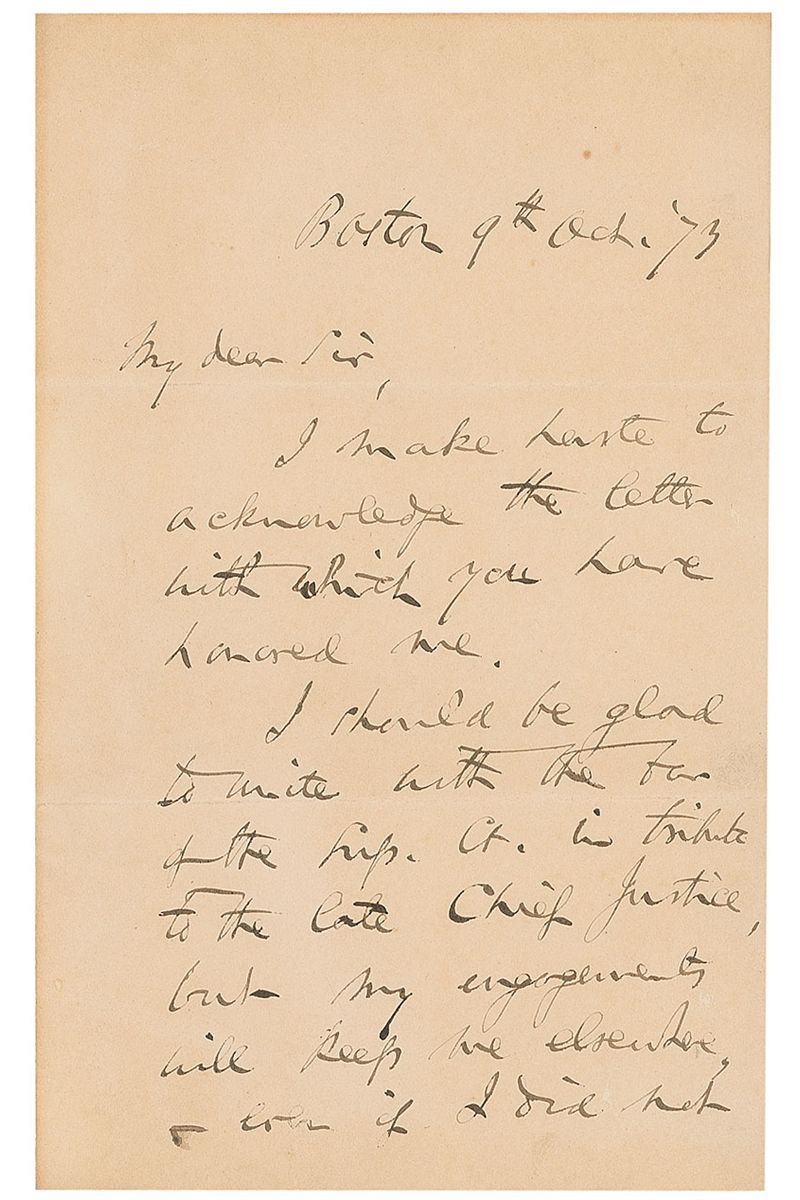 Boston 9th Oct. '73
My dear Sir,
I make haste to
acknowledge the letter
with which you have
honored me.
I should be glad
to unite with the bar
of the Sup. Ct. in tribute
to the late Chief Justice,
but my engagements
will keep me elsewhere,
– even if I did not